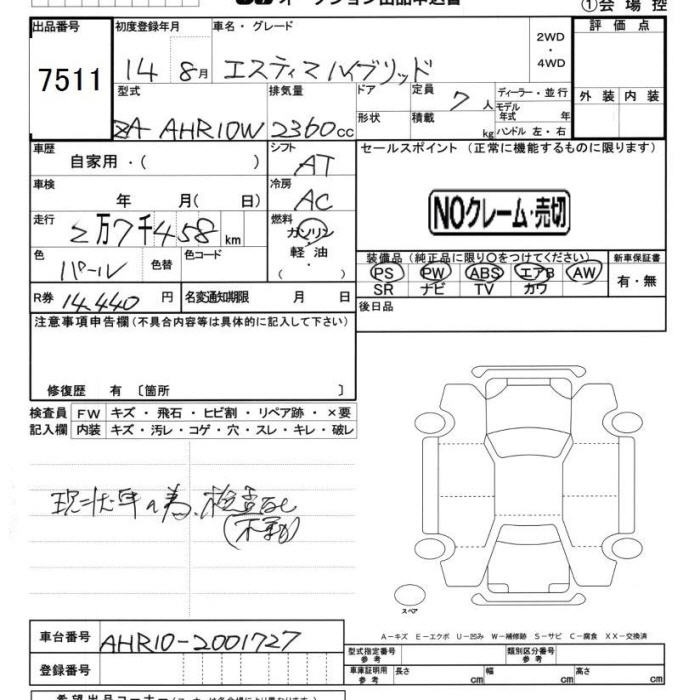 オークション出品申込書
①会場控
出品番号 初度登録年月 車名・グレード 評価点
7511
14 8月 エスティマハイブリッド
2WD
・
4WD
型式 排気量 ドア 定員 7人 ディーラー・並行
外装 内装
モデル年式 年
ZA-AHR10W 2360cc 形状 積載 kg ハンドル 左・右
車歴 シフト セールスポイント (正常に機能するものに限ります)
自家用・( ) AT
車検 冷房
年 月( 日) AC
NOクレーム・売切
走行 燃料
2万7千458km ガソリン
軽油
( ・ )
色 色替 色コード
パール
装備品 (純正品に限り〇をつけてください) 新車保証書
PS PW ABS エアB AW 有・無
SR ナビ TV カワ
R券 14,440円 名変通知期限 月 日 後日品
注意事項申告欄(不具合内容等は具体的に記入して下さい)
修復歴 有 〔箇所 〕
検査員 FW キズ・飛石・ヒビ割・リペア跡・×要
記入欄 内装 キズ・汚レ・コゲ・穴・スレ・キレ・破レ
現状車の為、検査なし
(不動)
スペア
A-キズ E-エクボ U-凹み W-補修跡 S-サビ C-腐食 XX-交換済
車台番号 AHR10-2001727
型式指定番号 参考 類別区分番号 参考
登録番号
車庫証明用 参考 長さ cm 幅 cm 高さ cm
希望出品コーナー